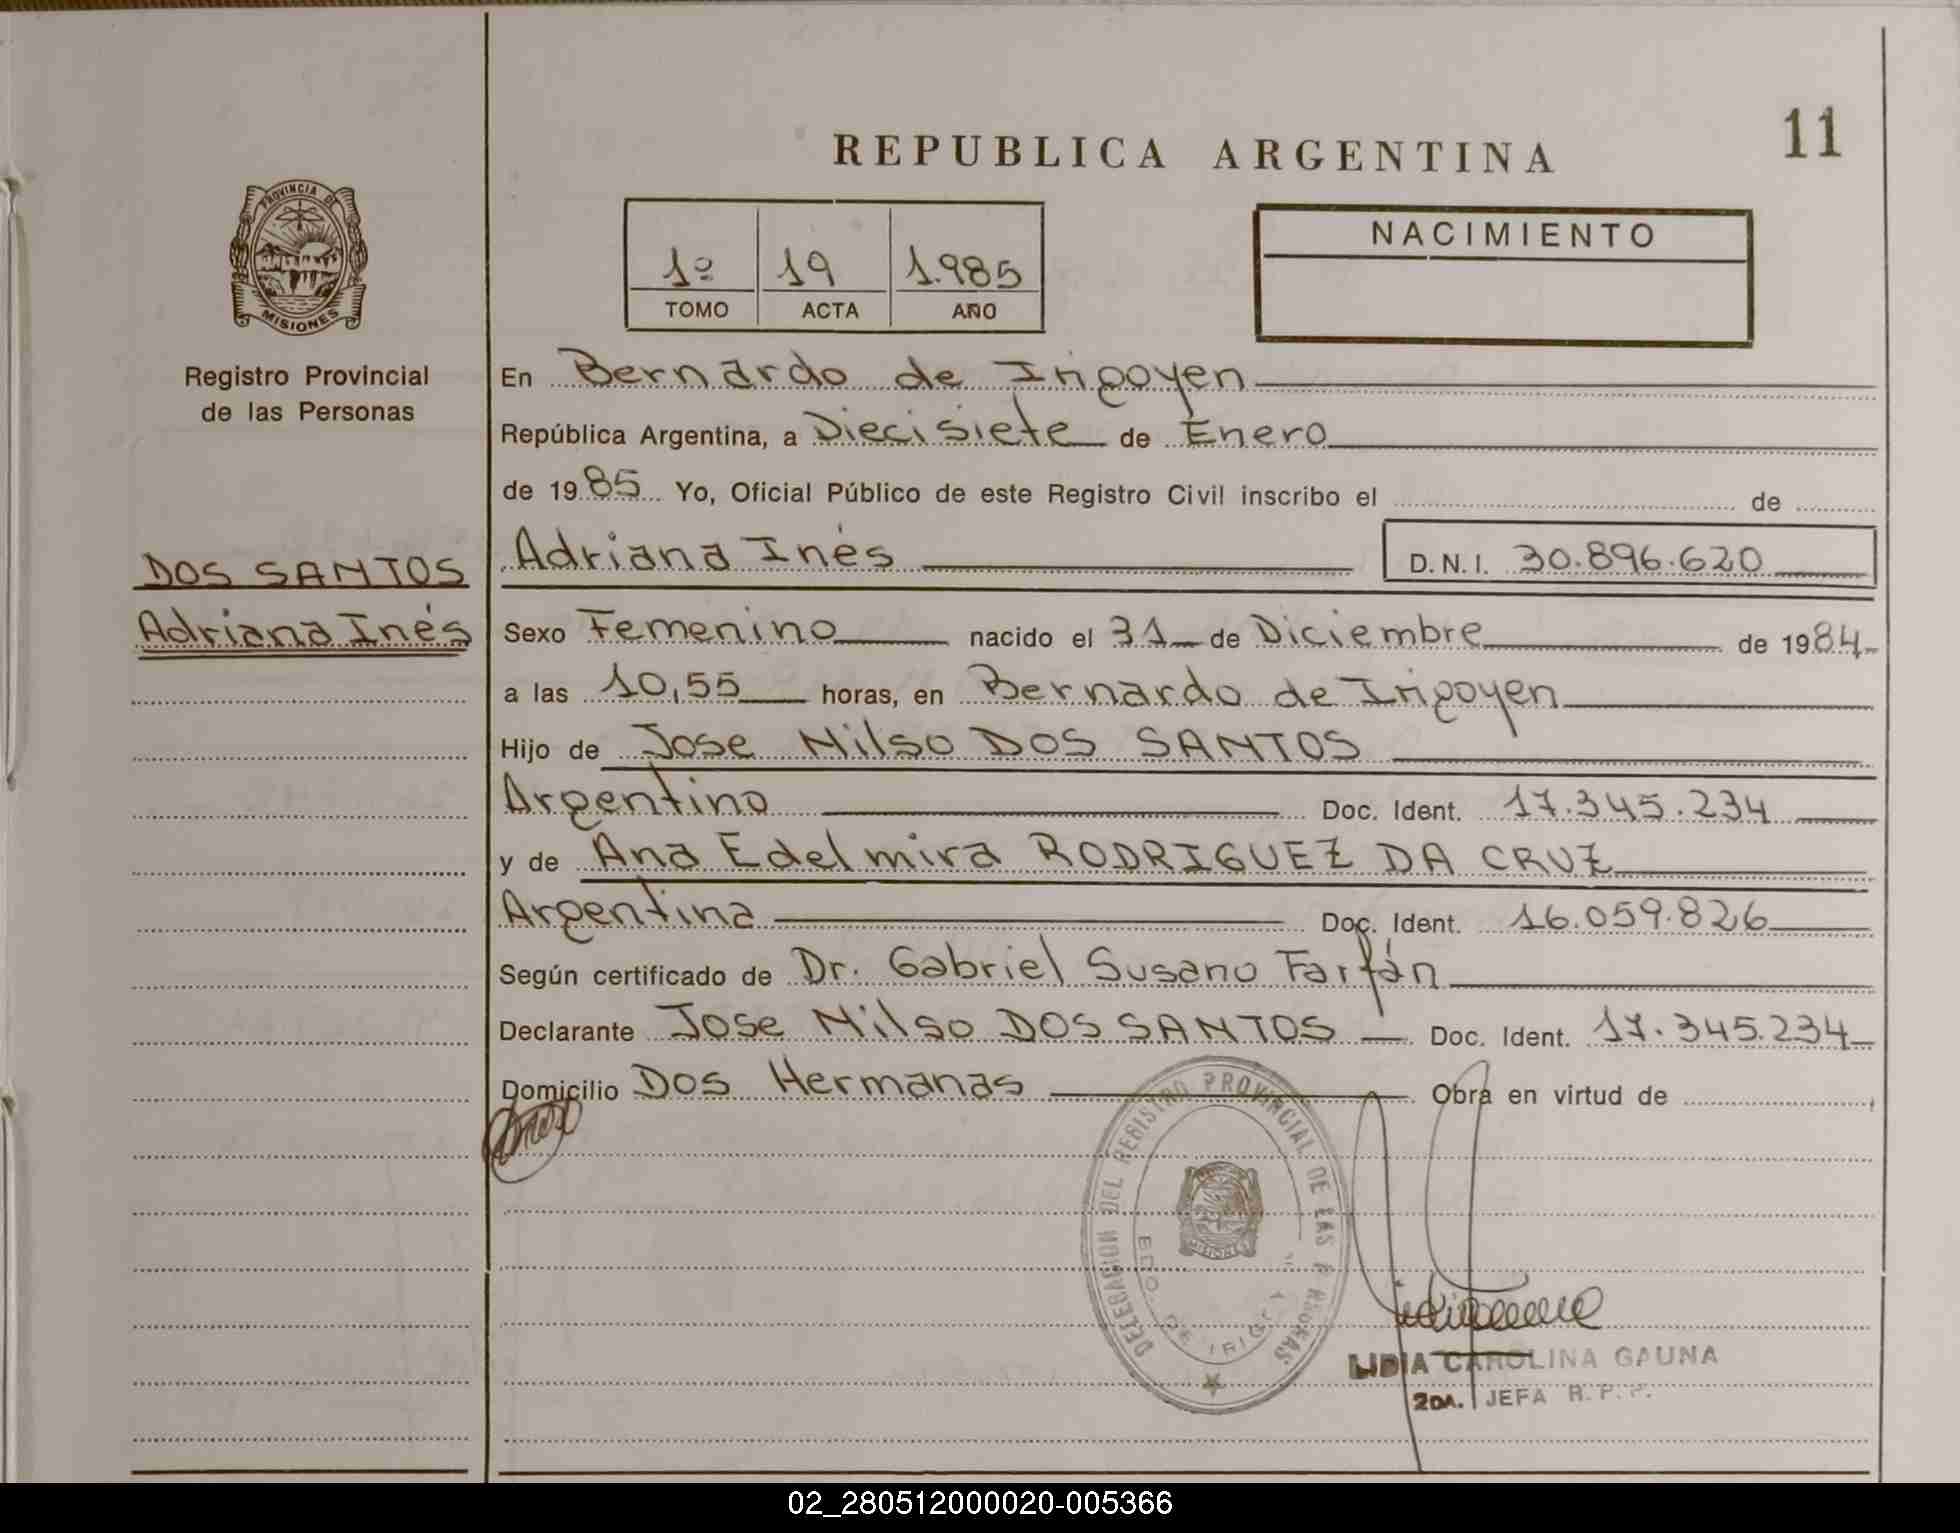 REPUBLICA ARGENTINA
11
PROVINCIA DE
MISIONES
Registro Provincial
de las Personas
1º 19 1.985
TOMO ACTA AÑO
NACIMIENTO
En Bernardo de Irigoyen
República Argentina, a Diecisiete de Enero
de 1985 Yo, Oficial Público de este Registro Civil inscribo el de
DOS SANTOS
Adriana Inés
Adriana Inés D.N.I. 30.896.620
Sexo Femenino nacido el 31 de Diciembre de 1984
a las 10,55 horas, en Bernardo de Irigoyen
Hijo de Jose Nilso DOS SANTOS
Argentino Doc. Ident. 17.345.234
y de Ana Edelmira RODRIGUEZ DA CRUZ
Argentina Doc. Ident. 16.059.826
Según certificado de Dr. Gabriel Susano Farfán
Declarante Jose Nilso DOS SANTOS Doc. Ident. 17.345.234
Domicilio Dos Hermanas Obra en virtud de
DELEGACION DEL REGISTRO PROVINCIAL DE LAS PERSONAS
BDO. DE IRIGOYEN
MISIONES
LIDIA CAROLINA GAUNA
2DA. JEFA R.P.P.
02_280512000020-005366